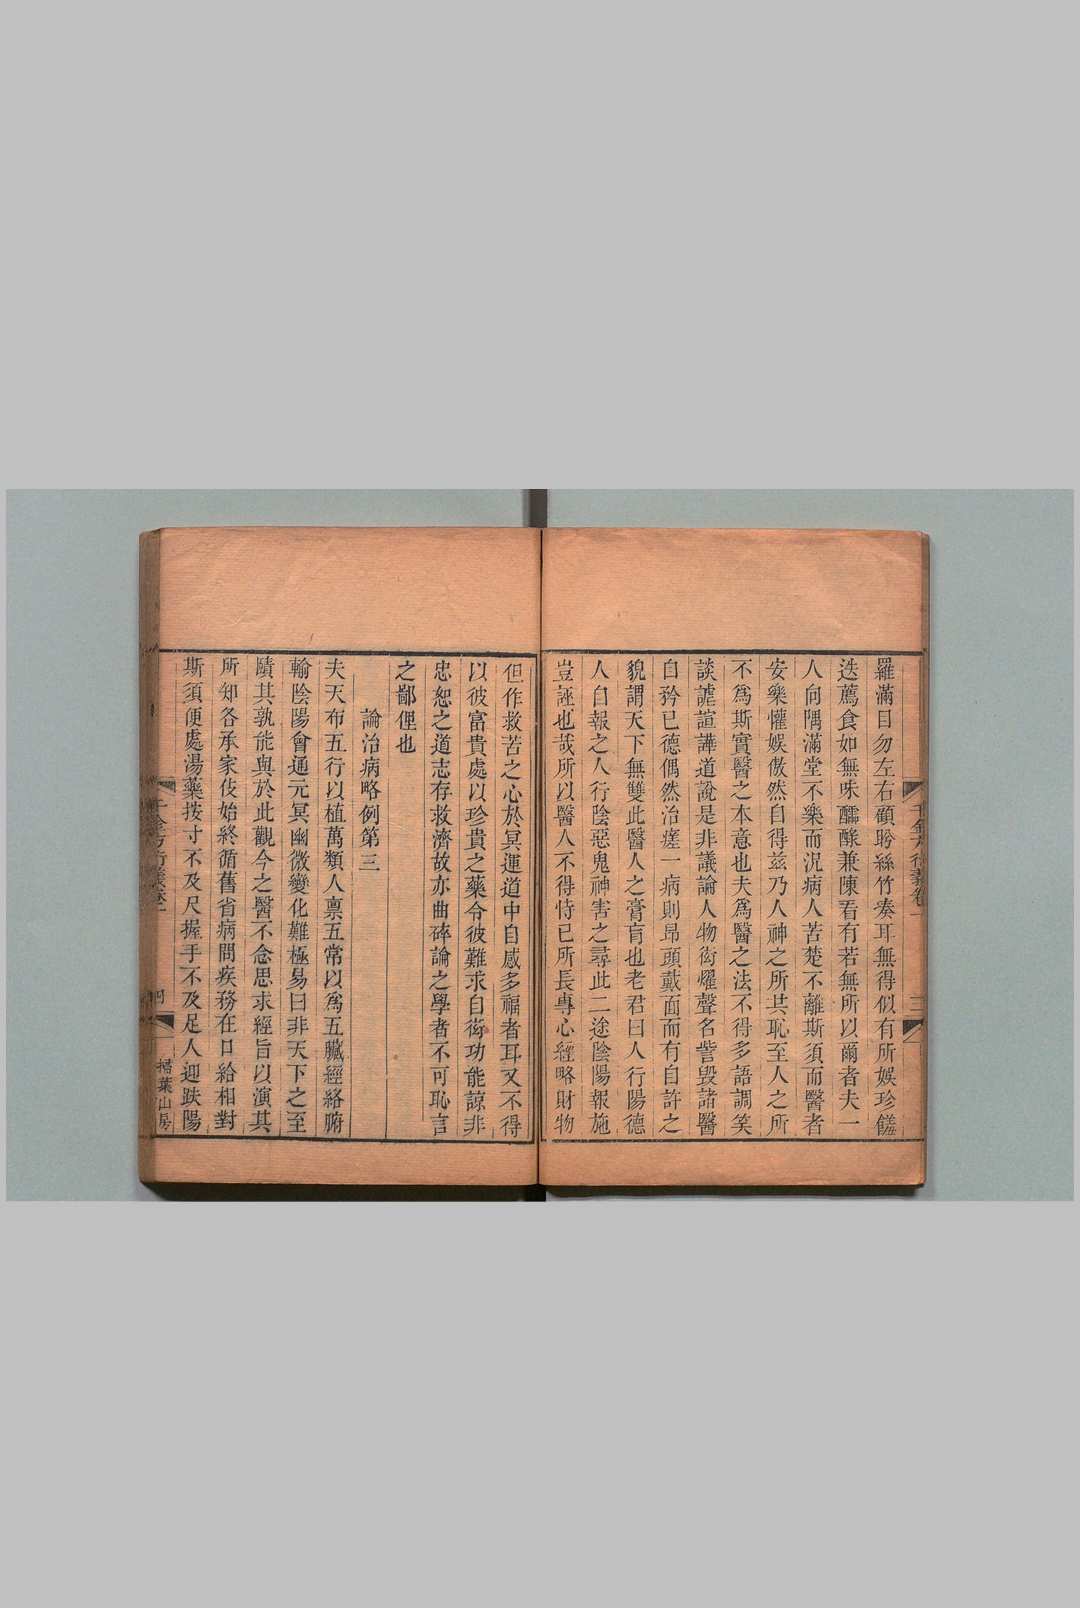 羅滿目勿左右顧盼絲竹奏耳無得似有所娛珍饈
迭薦食如無味醽醁兼陳看有若無所以爾者夫一
人向隅滿堂不樂而況病人苦楚不離斯須而醫者
安樂懽娛傲然自得兹乃人神之所共恥至人之所
不爲斯實醫之本意也夫爲醫之法不得多語調笑
談謔諠譁道說是非議論人物衒耀聲名訾毀諸醫
自矜已德偶然治瘥一病則昂頭戴面而有自許之
貌謂天下無雙此醫人之膏肓也老君曰人行陽德
人自報之人行陰惡鬼神害之尋此二途陰陽報施
豈誣也哉所以醫人不得恃已所長專心經略財物
但作救苦之心於冥運道中自感多福者耳又不得
以彼富貴處以珍貴之藥令彼難求自衒功能諒非
忠恕之道志存救濟故亦曲碎論之學者不可恥言
之鄙俚也
論治病略例第三
夫天布五行以植萬類人稟五常以爲五臟經絡腑
輸陰陽會通元冥幽微變化難極易曰非天下之至
賾其孰能與於此觀今之醫不念思求經旨以演其
所知各承家伎始終循舊省病問疾務在口給相對
斯須便處湯藥按寸不及尺握手不及足人迎趺陽
千金方衍義卷一
三
掃葉山房